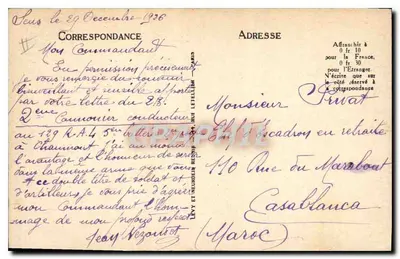 Sens le 29 Decembre 1926
CORRESPONDANCE
Mon Commandant
En permission précisement
je vous remercie du
et
par votre lettre du 28.
2ème Canonnier conducteur
au 129 R.A.4 5me
à Chaumont j'ai au moins
l'avantage et l'honneur de servir
dans la même arme que vous
et à ce double titre de soldat et
d'artilleur je vous prie d'agréer
mon Commandant l'hom-
mage de mon profond respect
Jean
ADRESSE
Affranchir à
0 fr 10
pour la France,
0 fr 30
pour l'Etranger
N'écrire que sur
le côté réservé à
la correspondance
Monsieur Privat
Chef d'Escadron en retraite
110 Rue du Marabout
Casablanca
(Maroc)